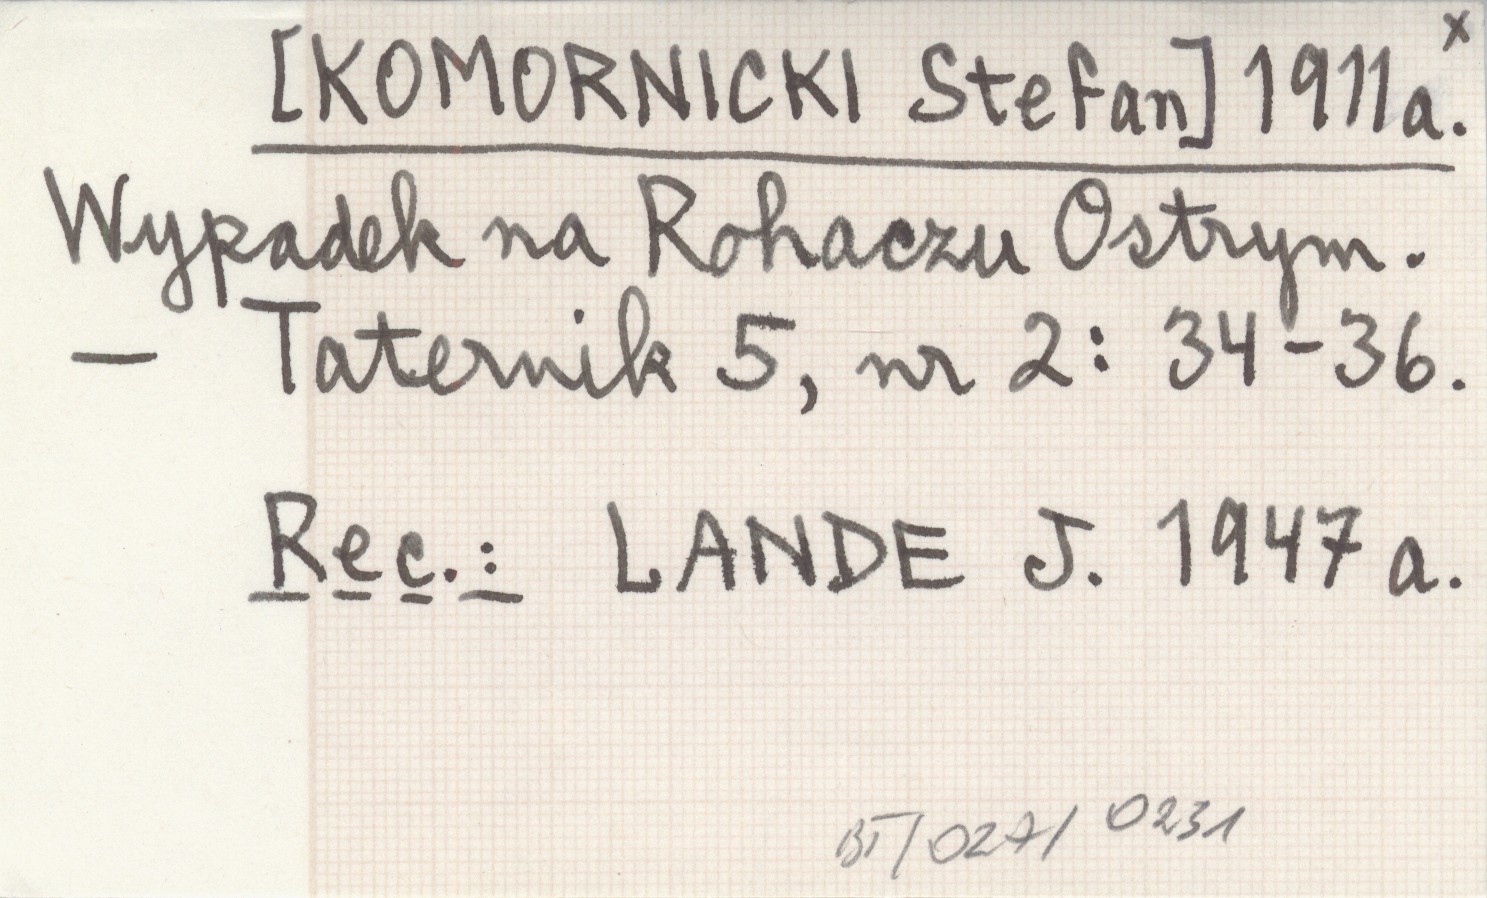 [KOMORNICKI Stefan] 1911a.x
Wypadek na Rohaczu Ostrym.
— Taternik 5, nr 2: 34-36.
Rec.: LANDE J. 1947 a.
BT/027/0231